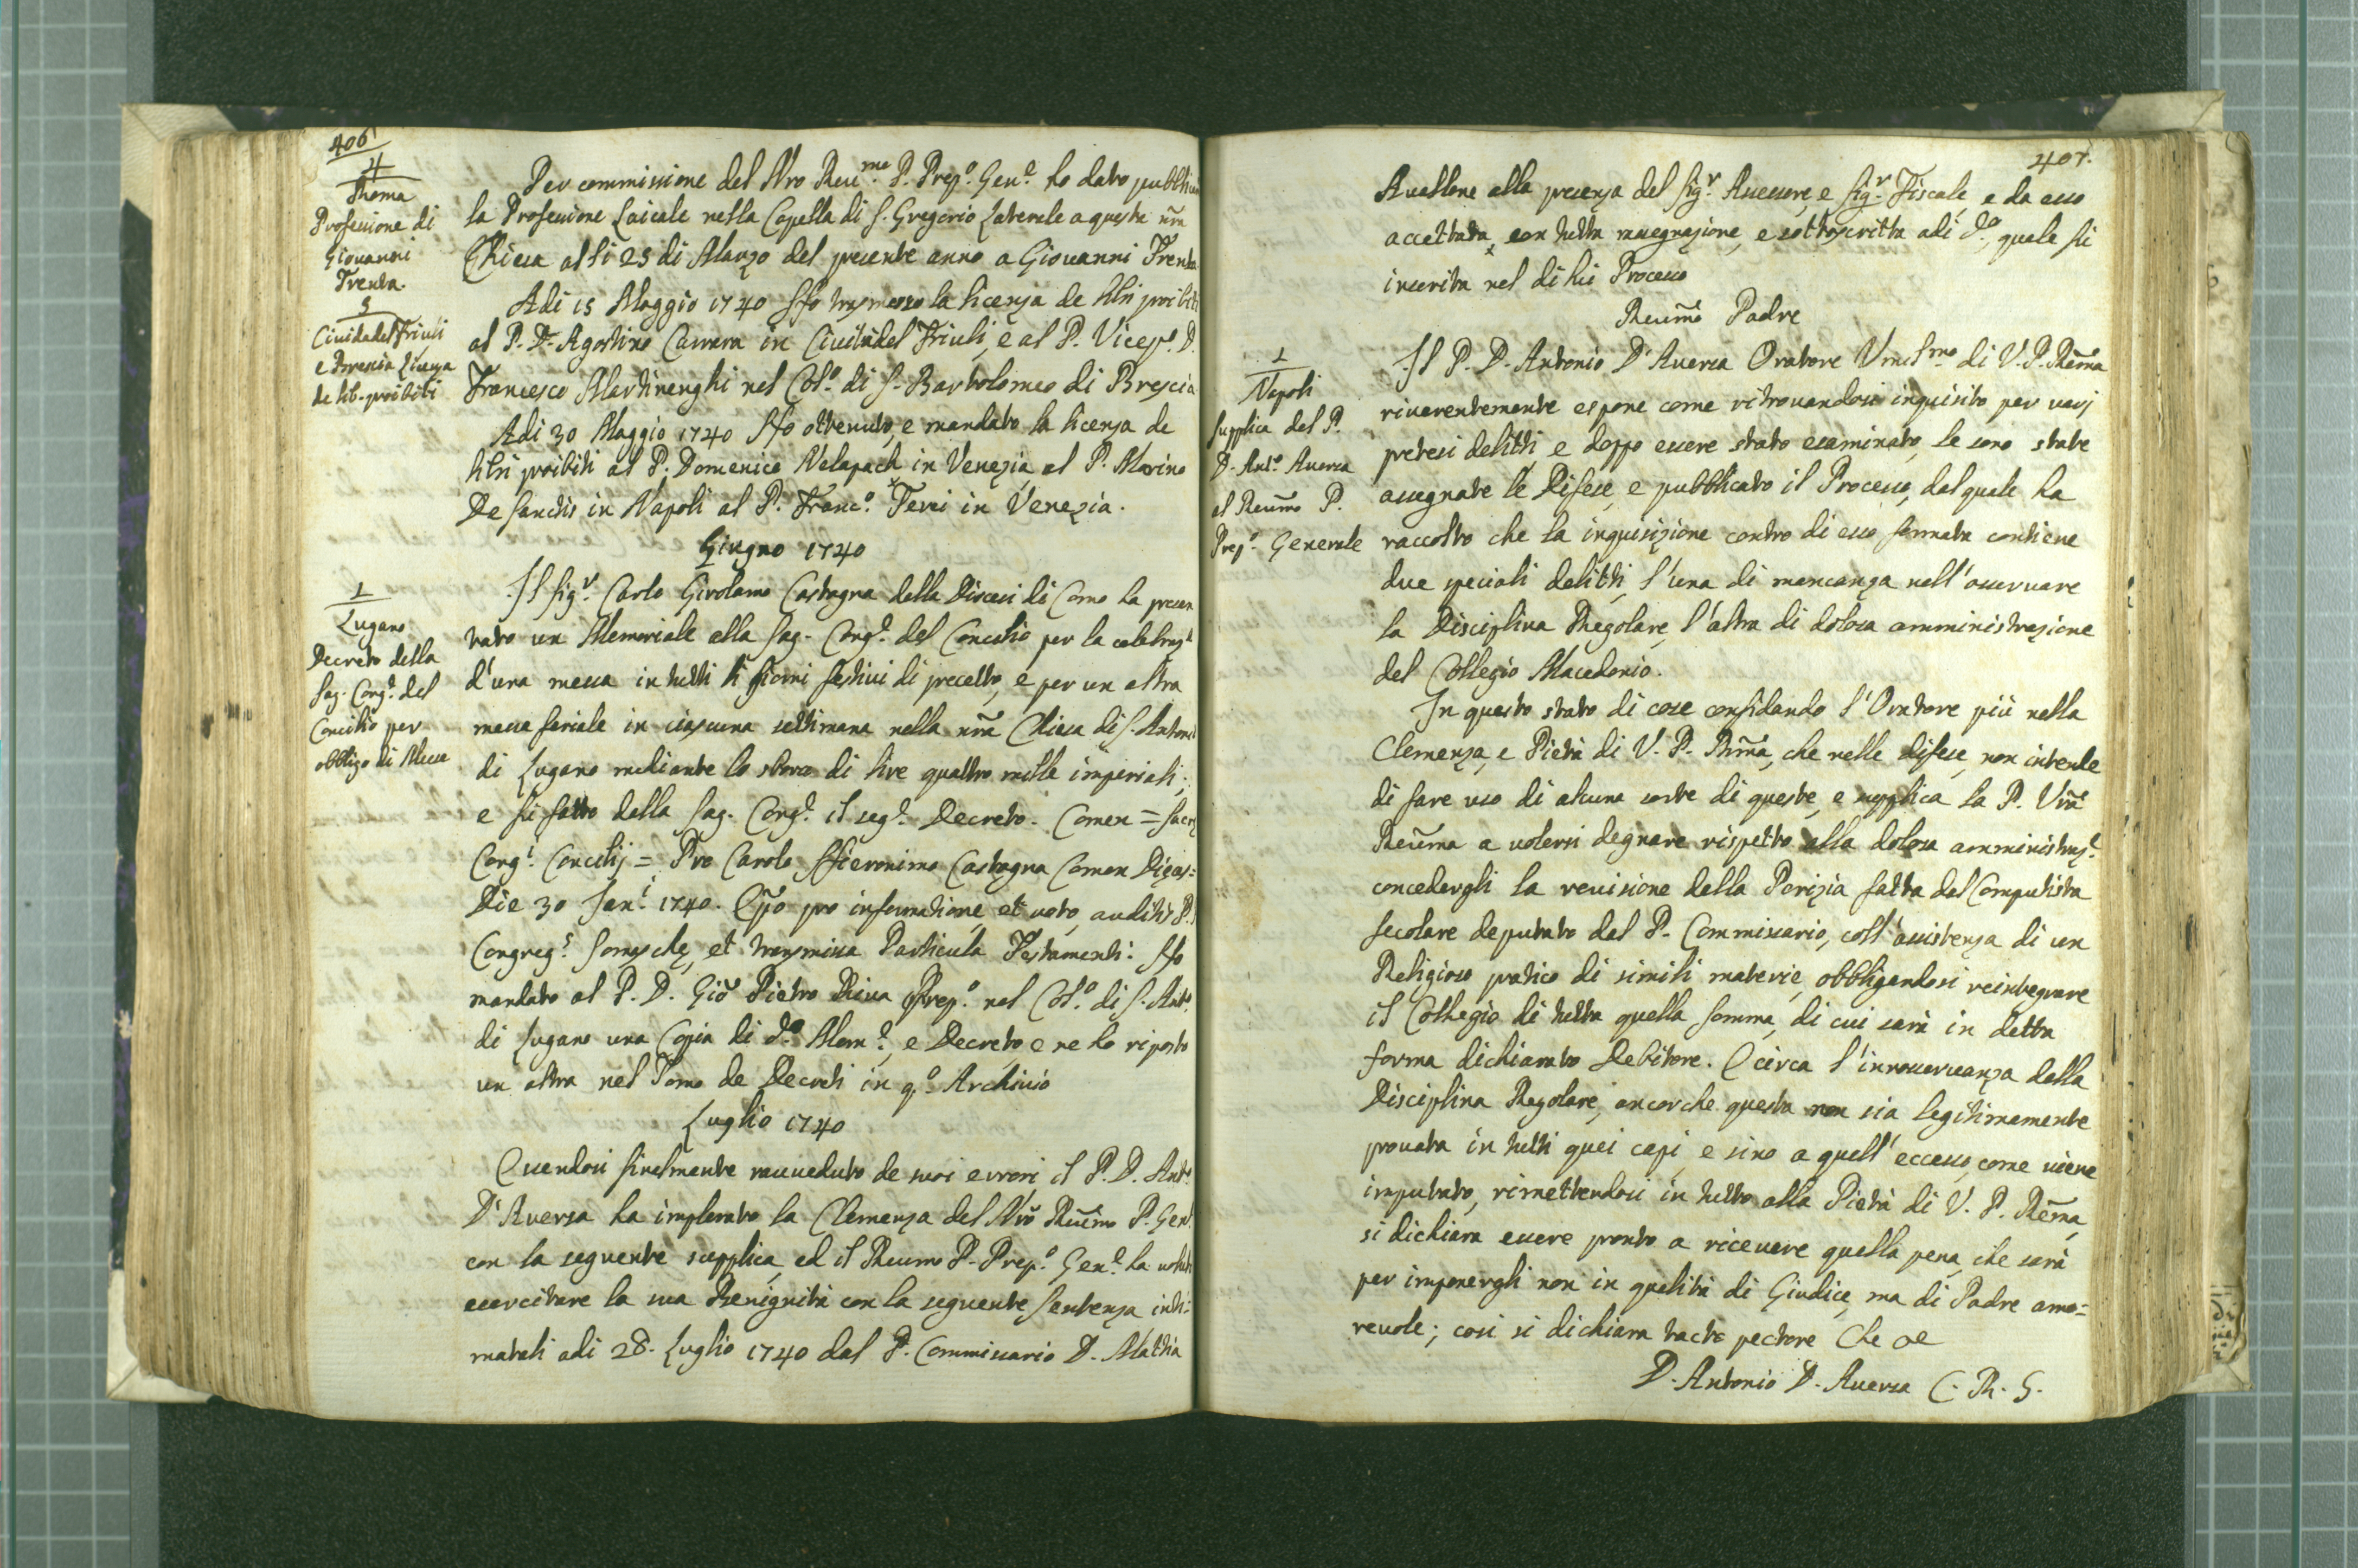 406
4
Roma
Professione di
Giovanni
Trenta.
Per commissione del Nro Reu.mo P. Prep.o Gen.e ho dato pubblica
la Professione Laicale nella Capella di S. Gregorio Laterale a questa nra
Chiesa alli 25 di Marzo del presente anno a Giovanni Trenta
5
Ciuidadel Friuli
e Brescia Licenza
de lib. proibiti
Adi 15 Maggio 1740 Ho trasmesso la licenza de libri proibiti
al P. D. Agostino Carrara in Ciuitadel Friuli, e al P. Vicep.o D.
Francesco Martinenghi nel Col.o di S. Bartolomeo di Brescia
Adi 30 Maggio 1740 Ho ottenuto, e mandato la licenza de
libri proibiti al P. Domenico Nelapach in Venezia, al P. Marino
De Sanctis in Napoli al P. Franc.o Ferri in Venezia.
Giugno 1740
1
Lugano
Decreto della
Sag. Cong.e del
Concilio per
obbligo di Messe
Il Sig.r Carlo Girolamo Castagna della Diocesi di Como ha presen
tato un Memoriale alla Sag. Cong.e del Concilio per la celebraz.e
d'una messa in tutti li giorni festiui di precetto, e per un altra
messa feriale in ciascuna settimana nella nra Chiesa di S. Antonio
di Lugano mediante lo sborso di lire quattro mille imperiali;
e fù fatto della Sag. Cong.e il seg.e Decreto. Comen = Sacrę
Cong.s Concilij = Pro Carolo Hieronimo Castagna Comen Dięces=
Die 30 Jan.i 1740. Epo pro informatione, et uoto, auditis P.P.
Congreg.s Somaschę, et transmissa Particula Testamenti. Ho
mandato al P. D. Gio Pietro Riua Prep.o nel Col.o di S. Ant.o
di Lugano una Copia di d.o Mem.e, e Decreto, e ne ho riposto
un altra nel Tomo de Decreti in q.o Archiuio
Luglio 1740
Essendosi finalmente rauueduto de suoi errori il P. D. Ant.o
D'Auersa ha implorato la Clemenza del Nro Reumo P. Gen.e
con la seguente supplica, ed il Reumo P. Prep.o Gen.e ha uoluto
esercitare la sua Benignità con la seguente Sentenza inti=
matali adi 28. Luglio 1740 dal P. Commissario D. Mattia
407.
Auellone alla presenza del Sig.r Assessore, e Sig.r Fiscale, e da esso
accettata, con tutta rassegnazione, e sottoscritta adi d.o, quale fù
inserita nel di lui Processo
Reumo Padre
1
Napoli
Supplica del P.
D. Ant.o Auersa
al Reumo P.
Prep.o Generale
Il P. D. Antonio D'Auersa Oratore Vmilmo di V. P. Rema
riuerentemente espone come ritrouandosi inquisito per varj
pretesi delitti, e doppo essere stato esaminato, le sono state
assegnate le Difese, e pubblicato il Processo, dal quale ha
raccolto che la inquisizione contro di esso formata contiene
due speciali delitti, l'una di mancanza nell'osseruare
la Disciplina Regolare, l'altra di dolosa amministrazione
del Collegio Macedonio.
In questo stato di cose confidando l'Oratore più nella
Clemenza, e Pietà di V. P. Rma, che nelle difese, non intende
di fare uso di alcuna sorte di queste, e supplica la P. Vra
Reuma a uolersi degnare rispetto alla dolosa amministraz.e
concedergli la reuisione della Perizia fatta dal Computista
secolare deputato dal P. Commissario, coll'assistenza di un
Religioso pratico di simili materie, obbligandosi reintegrare
il Collegio di tutta quella somma, di cui sarà in detta
forma dichiarato Debitore. E circa l'inosseruanza della
Disciplina Regolare, ancorche questa non sia legitimamente
prouata in tutti quei capi, e sino a quell'eccesso, come uiene
imputato, rimettendosi in tutto alla Pietà di V. P. Rema,
si dichiara essere pronto a riceuere quella pena, che sarà
per imponergli non in qualità di Giudice, ma di Padre amo=
reuole; così si dichiara tacto pectore Che ec
D. Antonio D. Auersa C. R. S.